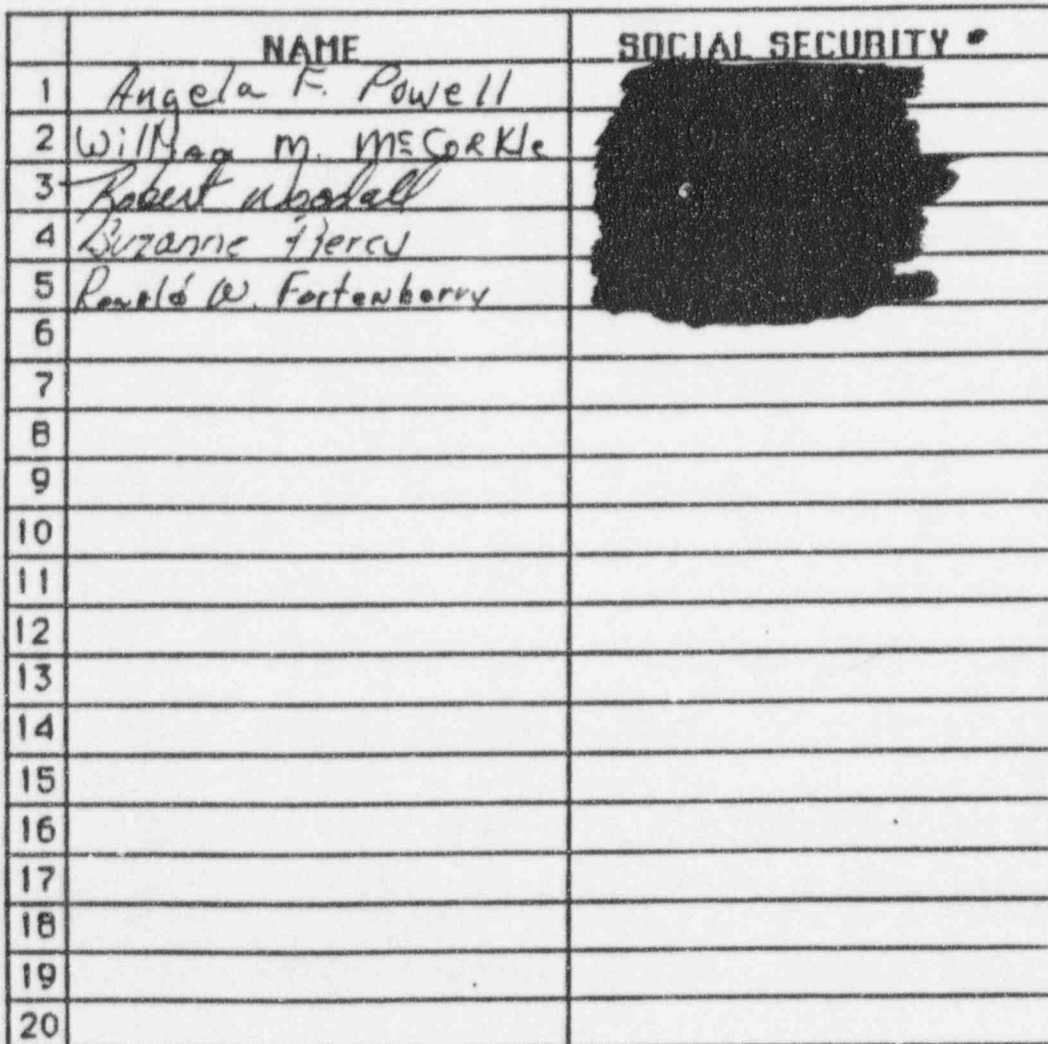 NAME SOCIAL SECURITY #
1 Angela F. Powell
2 William M. McCorkle
3 Robert Woodall
4 Suzanne Piercy
5 Ronald W. Fortenberry
6
7
8
9
10
11
12
13
14
15
16
17
18
19
20